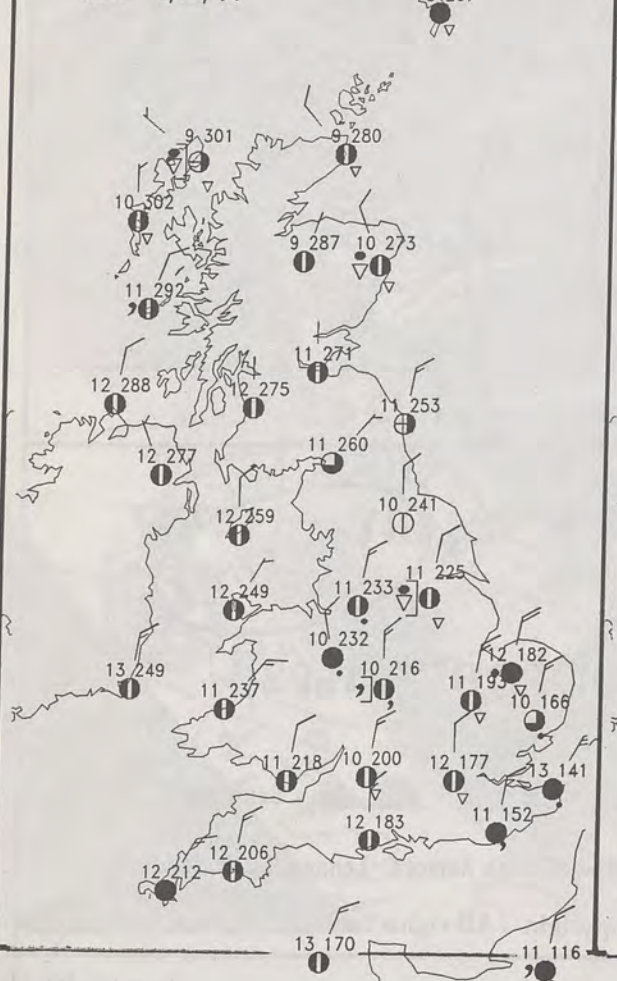 9 301
9 280
10 302
9 287
10 273
11 292
11 271
12 288
12 275
11 253
12 277
11 260
12 259
10 241
12 249
11 233
11 225
10 232
12 182
13 249
10 216
11 237
11 193
10 166
11 218
10 200
12 177
13 141
12 183
11 152
12 206
12 212
13 170
11 116